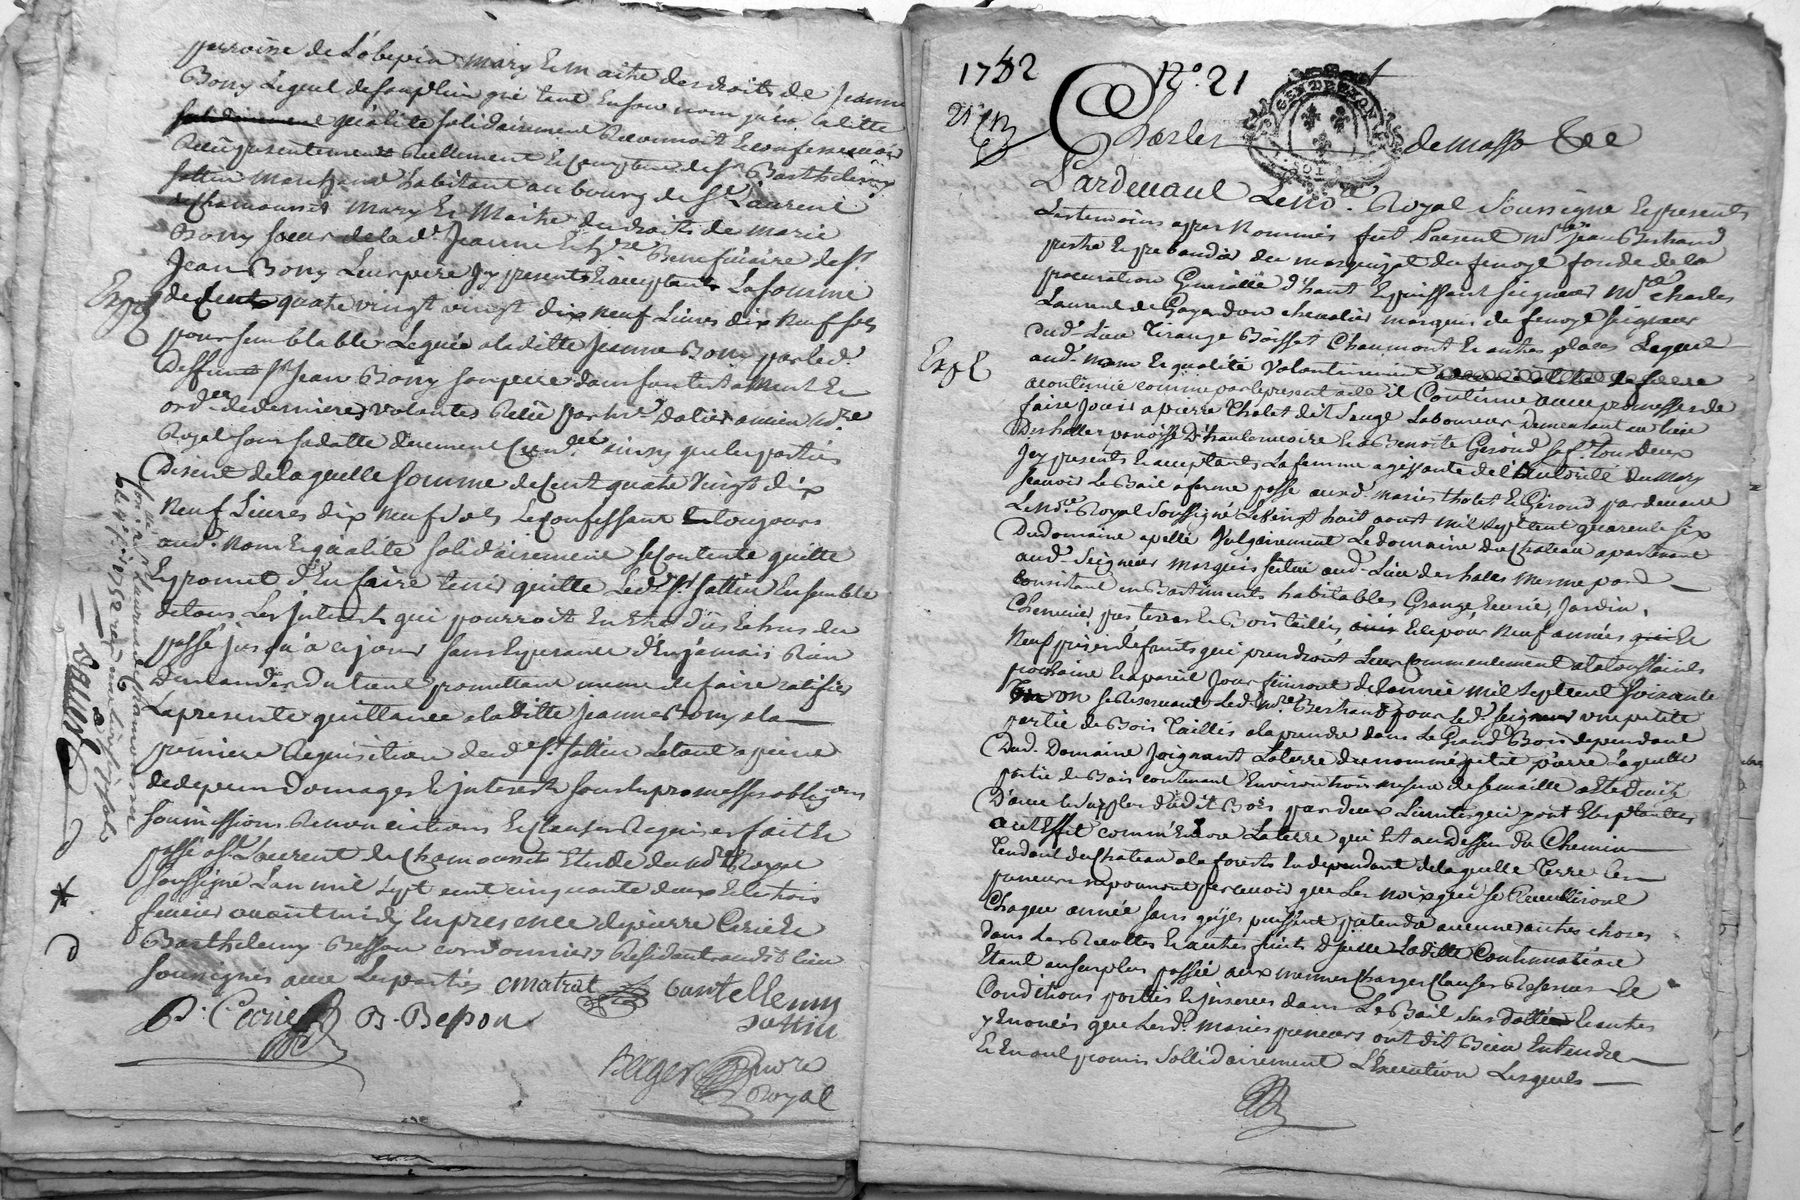 parroisse de L'obepin mary Et maitre des droits de Jeanne
Bony Lequel de son plein gré tant En son nom qu'en laditte
qualité solidairement Reconnoit Et confesse avoir
Reçu presentement Reellement Et Comptant de Sr Barthelemy
marchand habitant au bourg de St Laurent
de Chamousset mary Et Maitre des droits de marie
Bony soeur de lad. Jeanne Et Beneficiaire de Sr
Jean Bony Leur pere Jcy present Et acceptant La somme
de Cent quatre vingt dix neuf Livres dix neuf sols
pour semblable Leguée a laditte Jeanne Bony par led.
Deffunt Sr Jean Bony son pere dans son testament Et
ord. de derniere volonté Reçu par me Dalier ancien no.re
Royal sous sa datte duement Con.llé ainsy que les parties
Disent de laquelle somme de Cent quatre Vingt dix
Neuf Livres dix neuf sols Le confessant toujours
aud. nom Et qualité solidairement se contente quitte
Et promet d'En faire tenir quitte Led. Sr Ensemble
de tous Les Jnterests qui pourroit En Etre dus Echus du
passé jusqu'à ce jour sans Esperance d'En jamais Rien
Demander du tout promettant meme de faire ratifier
La presente quittance a laditte Jeanne Bony a la
premiere Requisition dud. Sr Le tout a peine
de depens Domages Et jnterests sous les promesses oblig.ons
soumissions Renonciations Et Clauses Requises fait Et
passé a St Laurent de Chamousset Etude du no.re Royal
soussigné L'an mil sept cent cinquante deux Et le trois
fevrier avant midy En presence de pierre Cerie Et
Barthelemy Besson cordonniers Residant audit lieu
soussignés avec Les parties Cmatrat Barthellemy
P. Cerie B. Besson
Berger No.re
Royal
Expé
1752
N° 21
GEN DE LYON
Charles de masso &ce
Pardevant Le no.re Royal Soussigné Et presents
Les temoins apres Nommés fut Present me Jean Bertrand
pretre Et prebandier du marquizat du fenoyl fondé de la
procuration Generalle d'haut Et puissant seigneur m.re Charles
Laurent de Gayardon chevalier marquis de fenoyl seigneur
dud. Lieu Tirange Boisset Chaumont Et autres places Lequel
aud. nom Et qualité Volontairement
a continué comme par le present acte il Continue avec promesses de
faire Jouir a pierre Tholet dit Sauge Laboureur Demeurant au lieu
Des halles paroisse D'hauterivoire Et a Benoite Gérond sa f. tous deux
Jcy presents Et acceptants La femme agissante de L'authorité du mary
sçavoir Le Bail a ferme passé auxd. mariés tholet Et Gérond par devant
Le no.re Royal Soussigné Le Vingt huit aoust mil sept cent quarente six
Du domaine apellé Vulgairement Le domaine du Chateau apartenant
aud. Seigneur marquis scitué aud. Lieu des halles mesme par.
consistant en Bastiments habitables Grange, Ecurie, Jardin,
Cheneviere, pres terres Et Bois taillis, Et ce pour Neuf années Et
Neuf prises de fruits qui prendront Leur Commencement a la toussaints
prochaine Et a pareil Jour finiront de L'année mil sept cent Soixante
Un on se Reservant Led. m.re Bertrand pour Led. seigneur une petite
partie de Bois Taillis a la prendre dans Le Grand Bois dependant
Dud. Domaine Joignant La terre du nommé petit pierre Laquelle
partie de Bois contenant Environ trois mesures de semaille
D'avec Le surplus dudit Bois par deux Limites qui y ont Eté plantées
a cet Effet comm'Encore La terre qui Est au dessus du Chemin
Tendant du Chateau a la forests En dependant de laquelle Terre Les
preneurs ne pourront percevoir que Les noix qui se Recueilliront
Chaque année sans qu'ils puissent pretendre aucunes autres choses
dans Les Recoltes Et autres fruits D'jcelle Laditte Continuation
Etant au surplus passée aux memes Charges Clauses Reserves Et
Conditions portées Et jnserées dans Le Bail sus datté Et autres
y Enoncés que Lesd. mariés preneurs ont dit Bien Entendre
Et En ont promis Sollidairement L'Execution Lesquels
Expé